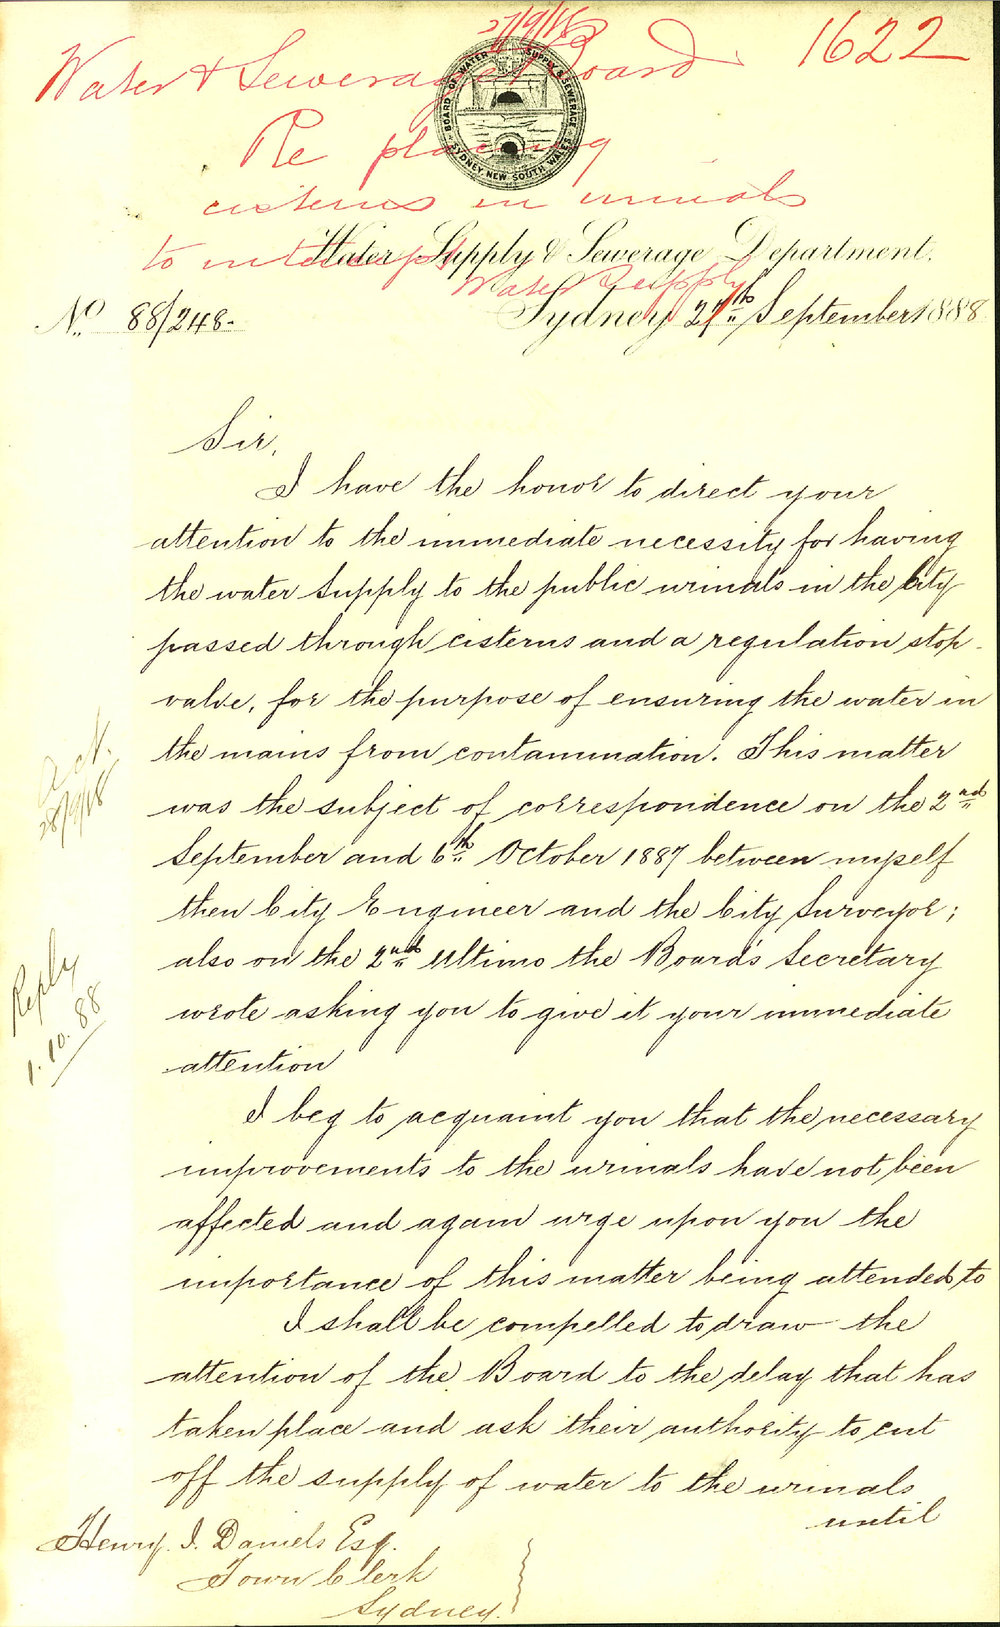 27/9/88
1622
Water & Sewerage Board
BOARD OF WATER SUPPLY & SEWERAGE
SYDNEY NEW SOUTH WALES
Re placing
cisterns in urinals
to intercept
Water Supply
Water Supply & Sewerage Department.
No. 88/248.
Sydney 27th September 1888
Sir,
I have the honor to direct your
attention to the immediate necessity for having
the water supply to the public urinals in the City
passed through cisterns and a regulation stop-
valve, for the purpose of ensuring the water in
the mains from contamination. This matter
was the subject of correspondence on the 2nd
September and 6th October 1887 between myself
then City Engineer and the City Surveyor;
also on the 2nd Ultimo the Board's Secretary
wrote asking you to give it your immediate
attention
I beg to acquaint you that the necessary
improvements to the urinals have not been
affected and again urge upon you the
importance of this matter being attended to
I shall be compelled to draw the
attention of the Board to the delay that has
taken place and ask their authority to cut
off the supply of water to the urinals
until
Ack.
28/9/88
Reply
1.10.88
Henry. J. Daniels Esq.
Town Clerk
Sydney.